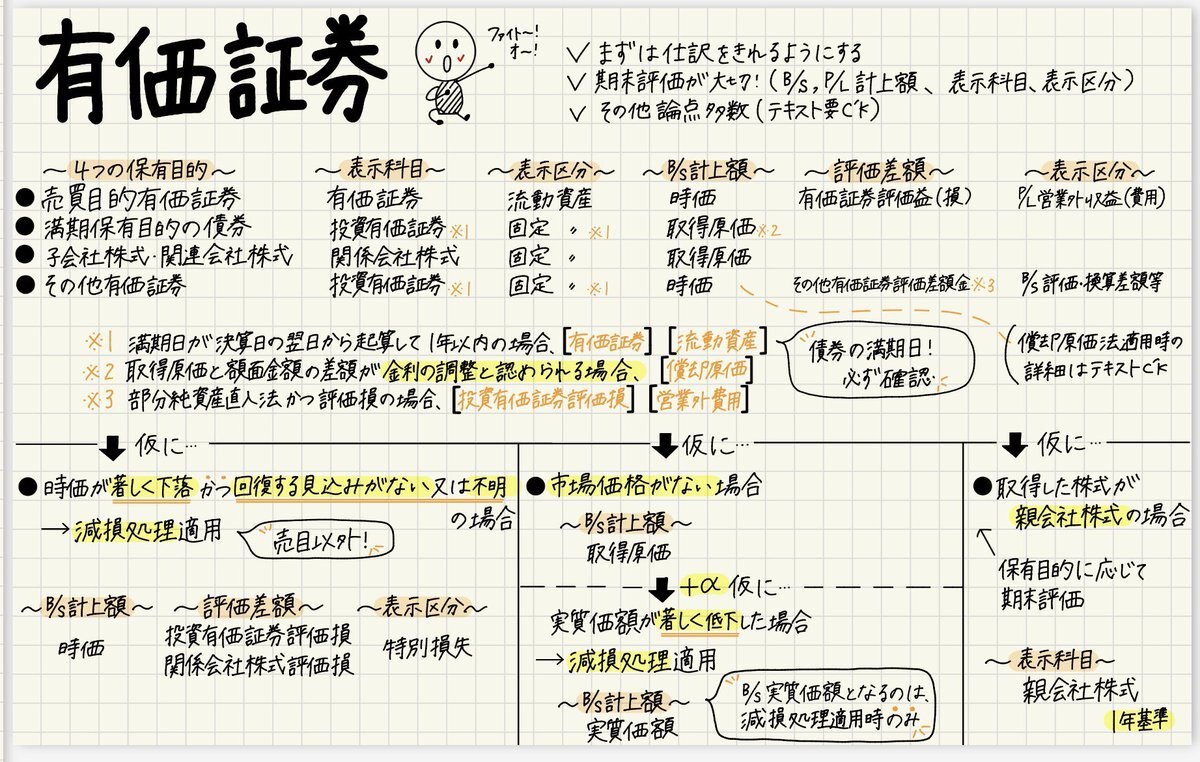 有価証券
ファイト〜!
オ〜!
✓ まずは仕訳をきれるようにする
✓ 期末評価が大切!(B/S,P/L計上額、表示科目、表示区分)
✓ その他論点多数(テキスト要C'K)
〜4つの保有目的〜 〜表示科目〜 〜表示区分〜 〜B/S計上額〜 〜評価差額〜 〜表示区分〜
●売買目的有価証券 有価証券 流動資産 時価 有価証券評価益(損) P/L営業外収益(費用)
●満期保有目的の債券 投資有価証券※1 固定 〃 ※1 取得原価※2
●子会社株式・関連会社株式 関係会社株式 固定 〃 取得原価
●その他有価証券 投資有価証券※1 固定 〃 ※1 時価 その他有価証券評価差額金※3 B/S評価・換算差額等
※1 満期日が決算日の翌日から起算して1年以内の場合、[有価証券] [流動資産]
※2 取得原価と額面金額の差額が金利の調整と認められる場合、[償却原価]
※3 部分純資産直入法かつ評価損の場合、[投資有価証券評価損] [営業外費用]
債券の満期日!
必ず確認.
(償却原価法適用時の
詳細はテキストC'K
仮に…
●時価が著しく下落かつ回復する見込みがない又は不明
の場合
→減損処理適用
売目以外!
〜B/S計上額〜 〜評価差額〜 〜表示区分〜
時価 投資有価証券評価損 特別損失
関係会社株式評価損
仮に…
●市場価格がない場合
〜B/S計上額〜
取得原価
+α 仮に…
実質価額が著しく低下した場合
→減損処理適用
〜B/S計上額〜
実質価額
B/S実質価額となるのは、
減損処理適用時のみ
仮に…
●取得した株式が
親会社株式の場合
保有目的に応じて
期末評価
〜表示科目〜
親会社株式
1年基準